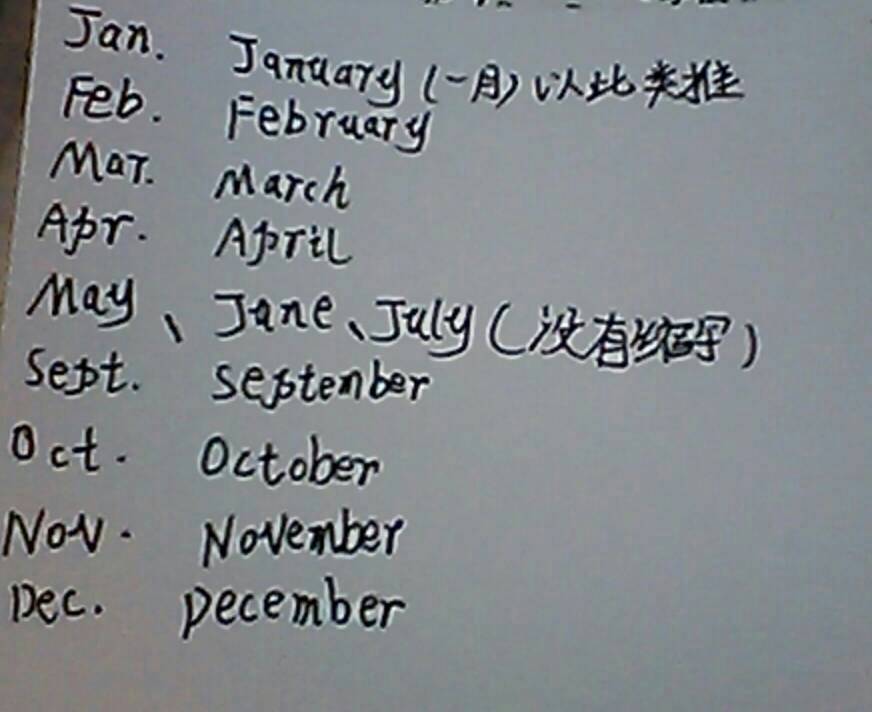 Jan. January (一月) 以此类推
Feb. February
Mar. March
Apr. April
May、Jane、July (没有缩写)
Sept. September
Oct. October
Nov. November
Dec. December